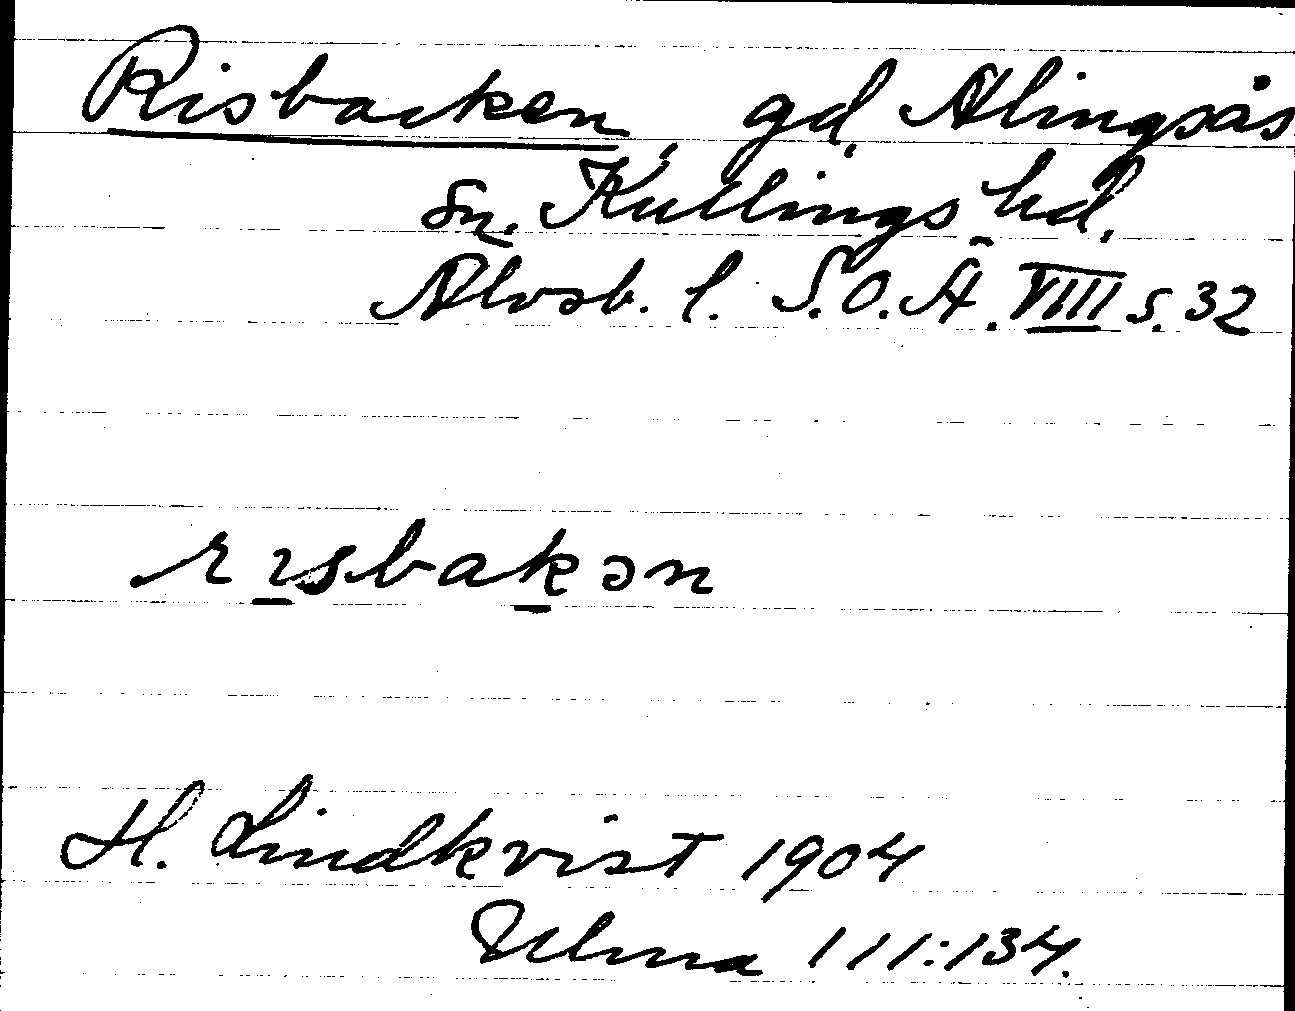 Risbacken, gd, Alingsås
sn. Kullings hd.
Älvsb. l. S.O.Ä. VIII s. 32
rısbakən
H. Lindkvist 1904
Ulma 111:134.